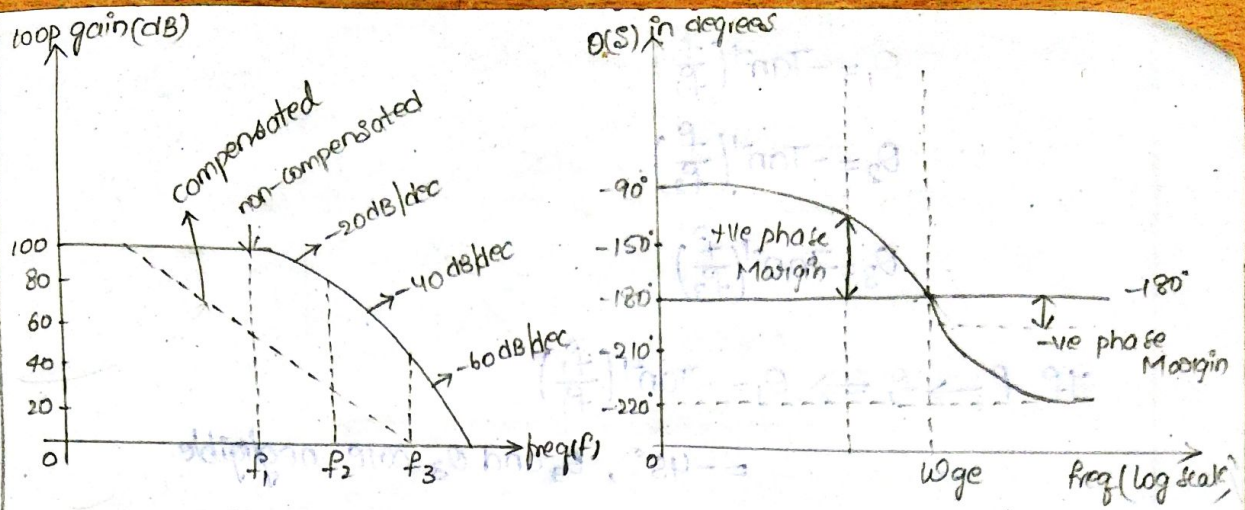 loop gain (dB)
compensated
non-compensated
-20dB/dec
-40dB/dec
-60dB/dec
100
80
60
40
20
0
f1
f2
f3
freq(f)
θ(S) in degrees
-90°
-150°
-180°
-210°
-220°
0
+ve phase
Margin
-180°
-ve phase
Margin
Wgc
freq (log scale)